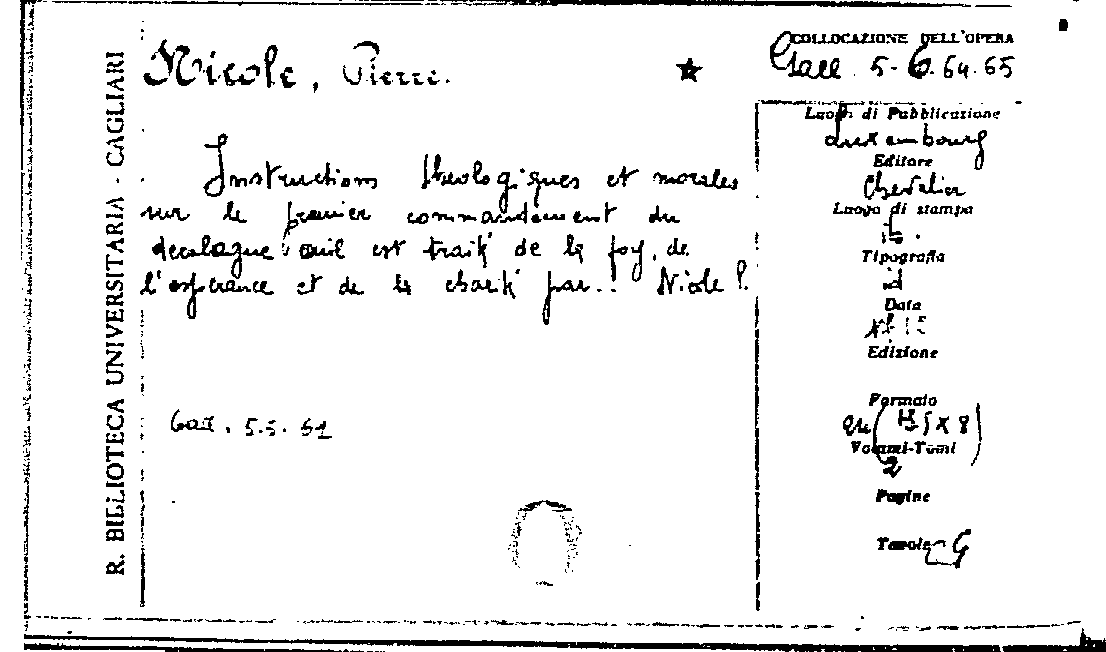 R. BIBLIOTECA UNIVERSITARIA - CAGLIARI
Nicole, Pierre.
★
COLLOCAZIONE DELL'OPERA
Gall. 5-6.64.65
Instructions theologiques et morales
sur le premier commandement du
decalogue ou il est traité de la foy, de
l'esperance et de la charité par.. Nicole P.
Gall. 5.5.
Luogo di Pubblicazione
Luxembourg
Editore
Chevalier
Luogo di stampa
Tipografia
id
Data
Edizione
Formato
Volumi-Tomi
2
Pagine
Tavole